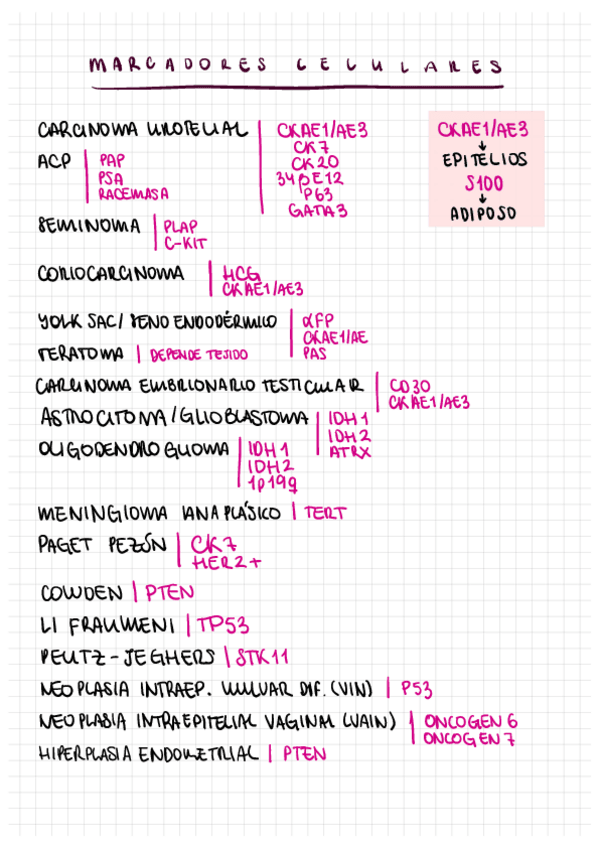 MARCADORES CELULARES
CARCINOMA UROTELIAL | CKAE1/AE3
CK7
CK20
34βE12
P63
GATA3
CKAE1/AE3
↓
EPITELIOS
S100
↓
ADIPOSO
ACP | PAP
PSA
RACEMASA
SEMINOMA | PLAP
C-KIT
CORIOCARCINOMA | HCG
CKAE1/AE3
YOLK SAC/SENO ENDODÉRMICO | αFP
CKAE1/AE
PAS
TERATOMA | DEPENDE TEJIDO
CARCINOMA EMBRIONARIO TESTICULAR | CD30
CKAE1/AE3
ASTROCITOMA/GLIOBLASTOMA | IDH1
IDH2
ATRX
OLIGODENDROGLIOMA | IDH1
IDH2
1p19q
MENINGIOMA ANAPLÁSICO | TERT
PAGET PEZÓN | CK7
HER2+
COWDEN | PTEN
LI FRAUMENI | TP53
PEUTZ-JEGHERS | STK11
NEOPLASIA INTRAEP. VULVAR DIF. (VIN) | P53
NEOPLASIA INTRAEPITELIAL VAGINAL (VAIN) | ONCOGEN 6
ONCOGEN 7
HIPERPLASIA ENDOMETRIAL | PTEN